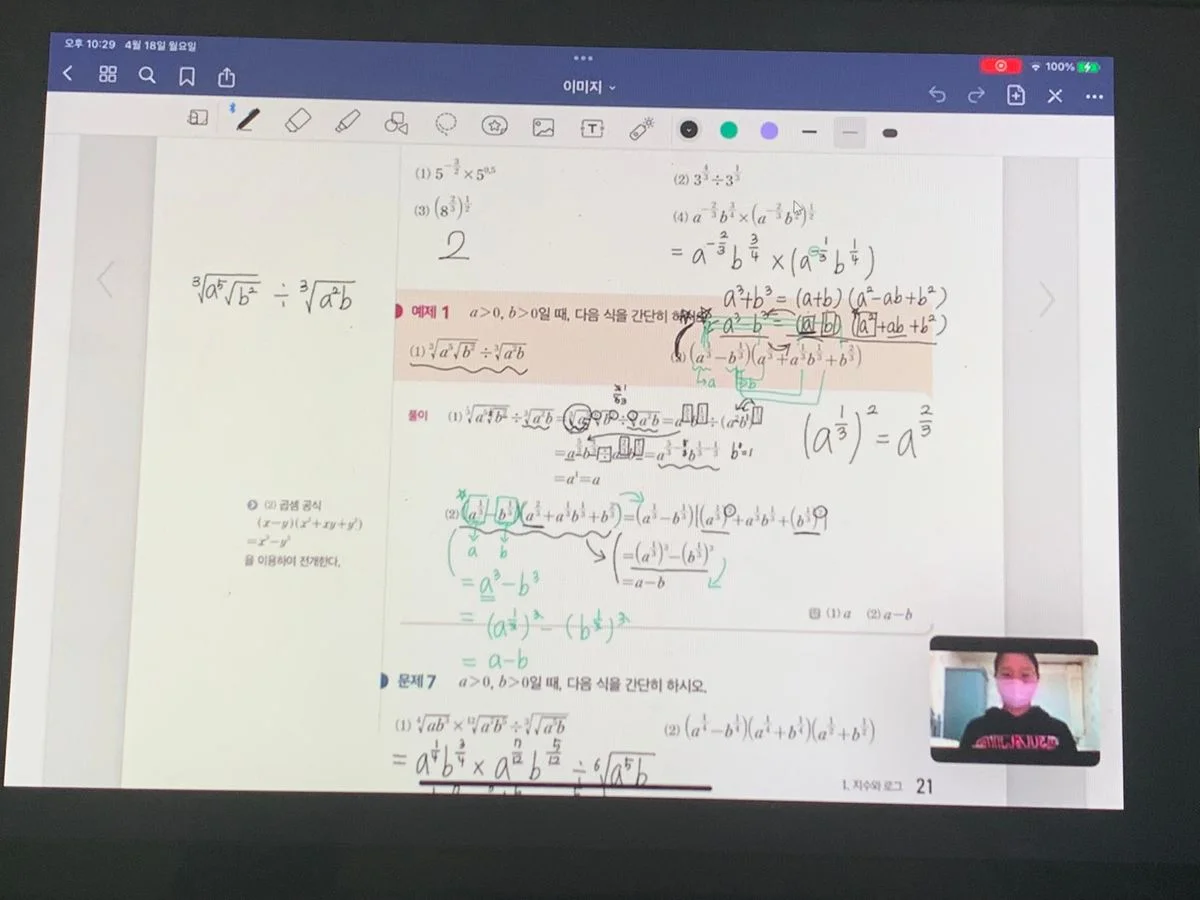 오후 10:29 4월 18일 월요일
100%
이미지
(1) 5^{-\frac{3}{2}} × 5^{0.5}
(2) 3^{\frac{4}{3}} ÷ 3^{\frac{1}{3}}
(3) (8^{\frac{2}{3}})^{\frac{1}{2}}
(4) a^{-\frac{2}{3}} b^{\frac{3}{4}} × (a^{-\frac{2}{3}} b
2
= a^{-\frac{2}{3}} b^{\frac{3}{4}} × (a^{-\frac{1}{3}} b^{\frac{1}{4}})
∛(a⁵√b²) ÷ ∛(a²b)
a³+b³ = (a+b)(a²-ab+b²)
a³-b³ = (a-b)(a²+ab+b²)
예제 1 a>0, b>0일 때, 다음 식을 간단히 하
(1) ∛(a⁵√b²) ÷ ∛(a²b)
(a^{\frac{1}{3}} - b^{\frac{1}{3}})(a^{\frac{2}{3}} + a^{\frac{1}{3}}b^{\frac{1}{3}} + b^{\frac{2}{3}})
a b
(a^{\frac{1}{3}})² = a^{\frac{2}{3}}
풀이 (1)
= a^{\frac{5}{3}-\frac{2}{3}} b^{\frac{1}{3}-\frac{1}{3}} b⁰=1
= a¹ = a
(2) (a^{\frac{1}{3}} - b^{\frac{1}{3}})(a^{\frac{2}{3}} + a^{\frac{1}{3}}b^{\frac{1}{3}} + b^{\frac{2}{3}}) = (a^{\frac{1}{3}} - b^{\frac{1}{3}}){(a^{\frac{1}{3}})² + a^{\frac{1}{3}}b^{\frac{1}{3}} + (b^{\frac{1}{3}})²}
a b
= (a^{\frac{1}{3}})³ - (b^{\frac{1}{3}})³
= a-b
(2) 곱셈 공식
(x-y)(x²+xy+y²)
=x³-y³
을 이용하여 전개한다.
= a³-b³
= (a^{\frac{1}{3}})³ - (b^{\frac{1}{3}})³
= a-b
답 (1) a (2) a-b
문제 7 a>0, b>0일 때, 다음 식을 간단히 하시오.
(1) ∜(ab³) × ¹²√(a⁷b⁵) ÷ ∛√(a⁵b)
(2) (a^{\frac{1}{4}} - b^{\frac{1}{4}})(a^{\frac{1}{4}} + b^{\frac{1}{4}})(a^{\frac{1}{2}} + b^{\frac{1}{2}})
= a^{\frac{1}{4}} b^{\frac{3}{4}} × a^{\frac{7}{12}} b^{\frac{5}{12}} ÷ ⁶√(a⁵b)
1. 지수와 로그 21